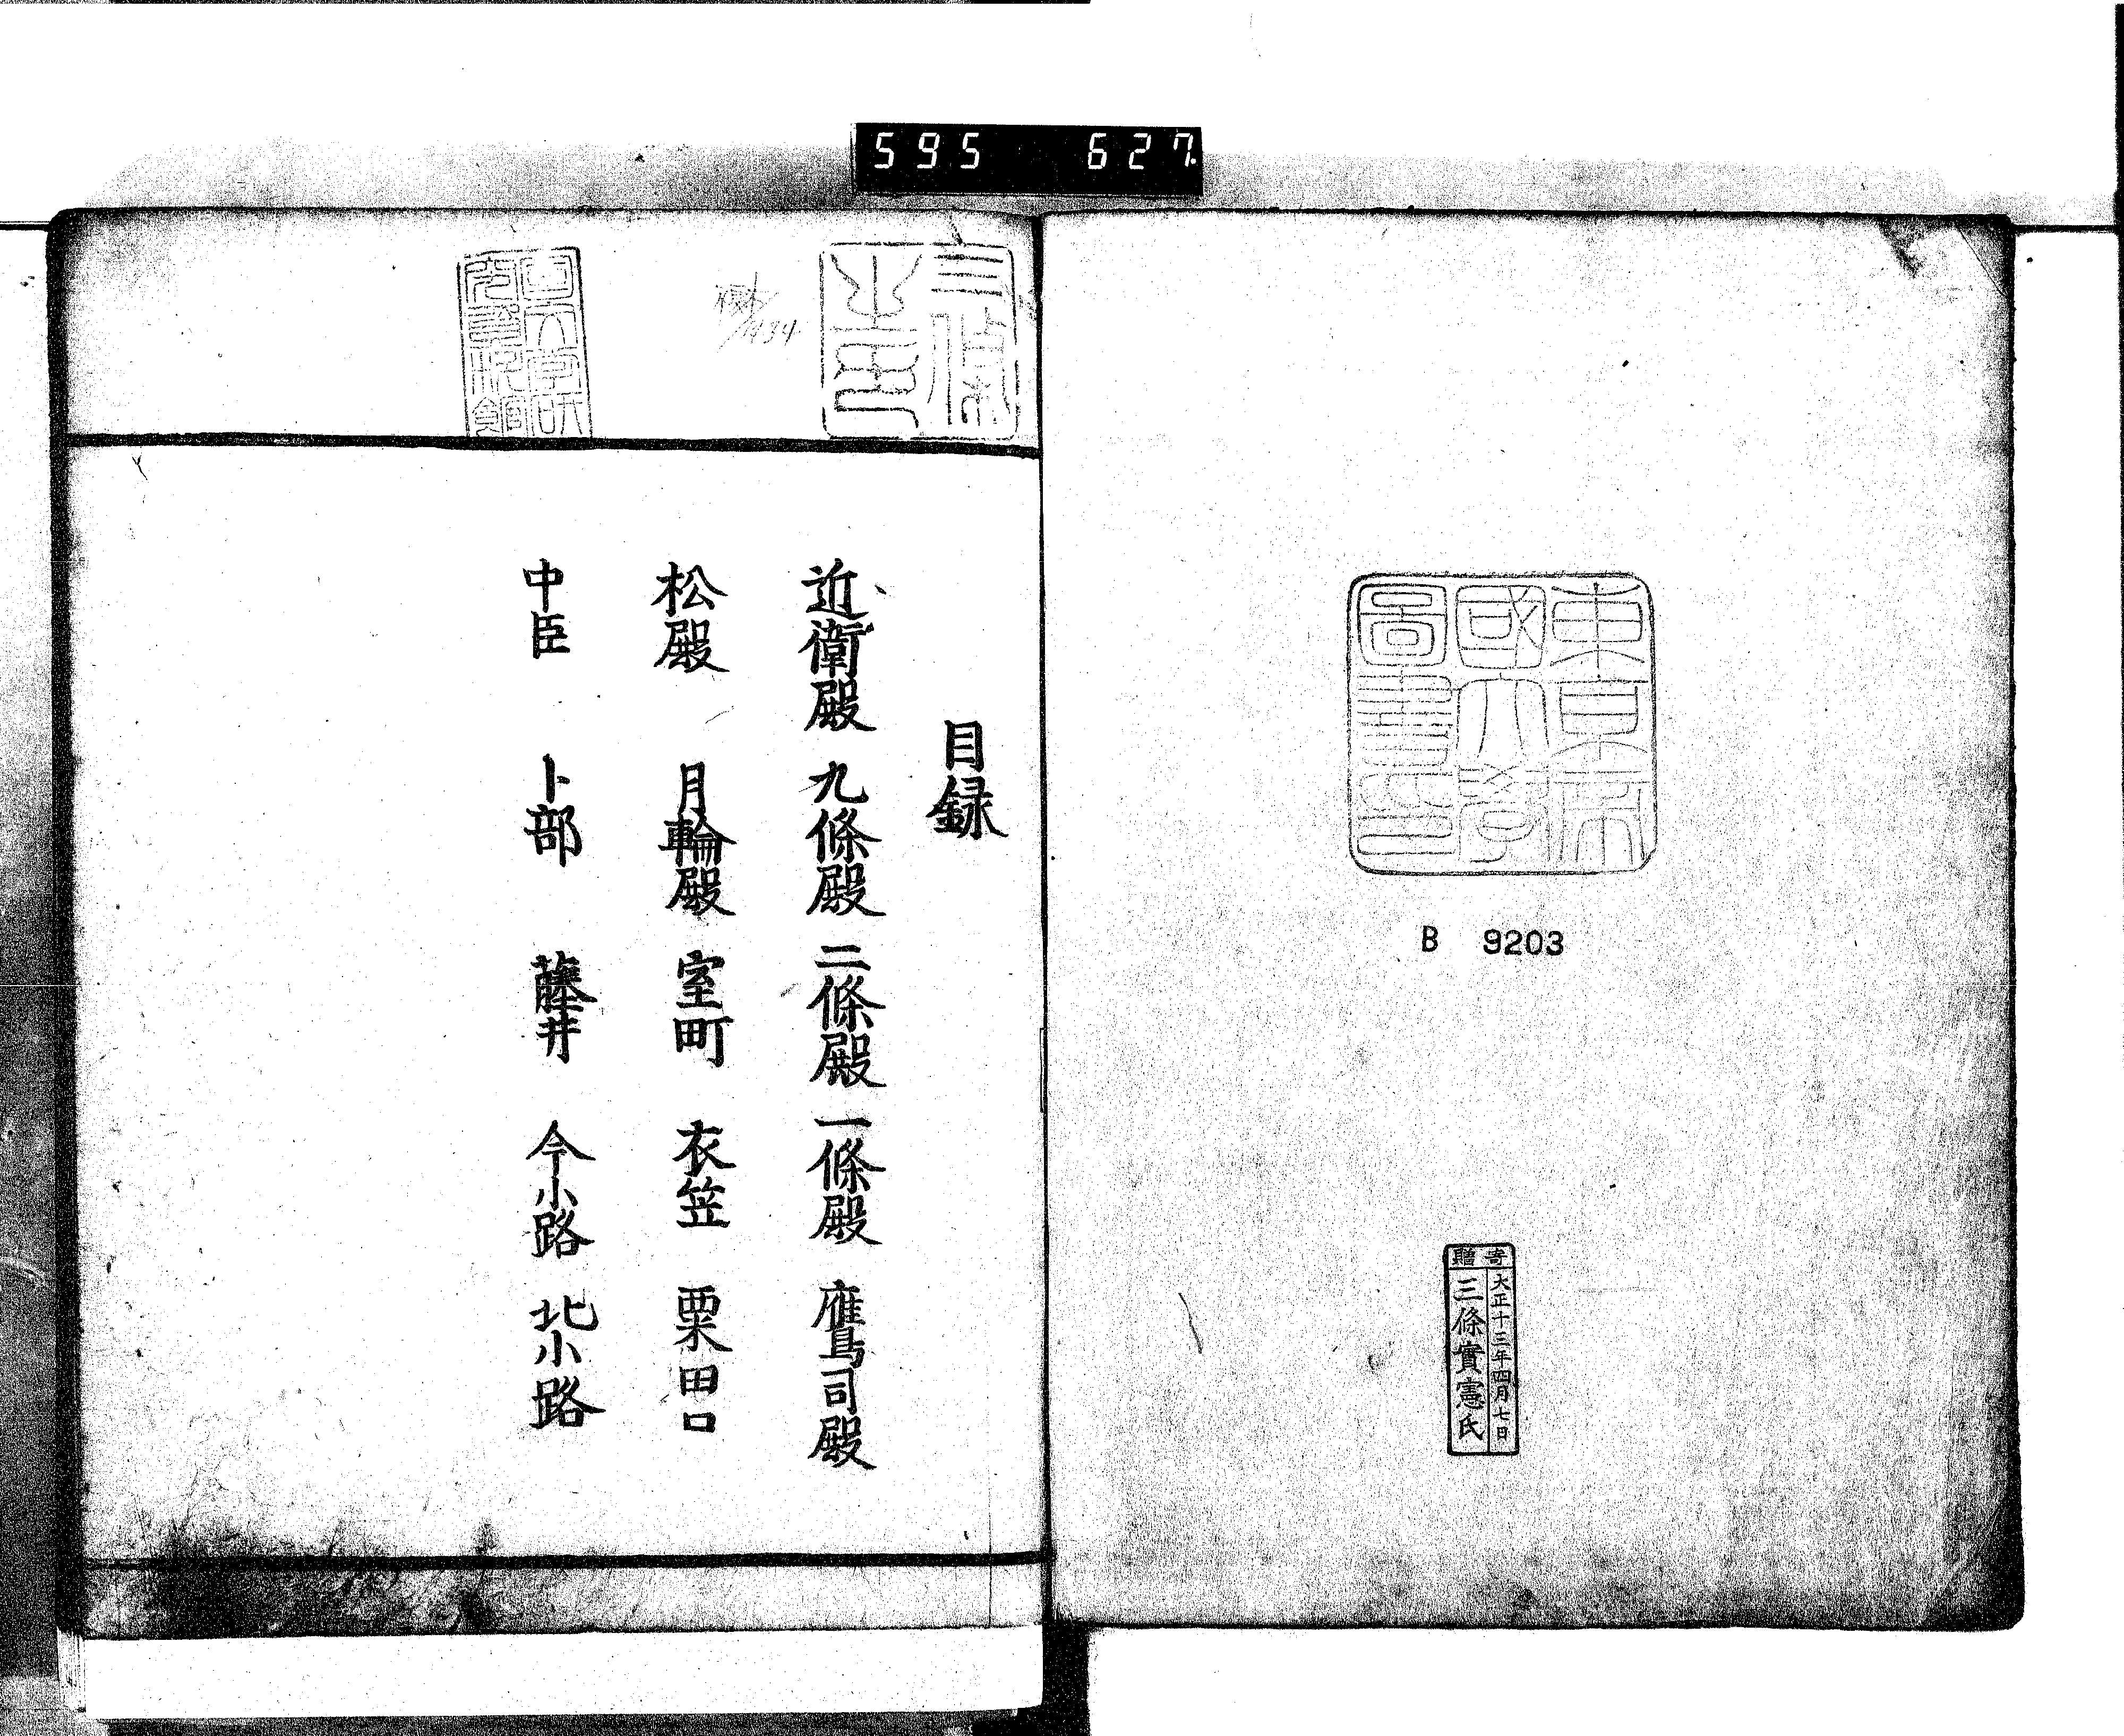 595 627
東京帝
國大學
圖書印
B 9203
寄贈
大正十三年四月七日
三條實憲氏
三條
目録
近衛殿 九條殿 二條殿 一條殿 鷹司殿
松殿 月輪殿 室町 衣笠 粟田口
中臣 卜部 藤井 今小路 北小路